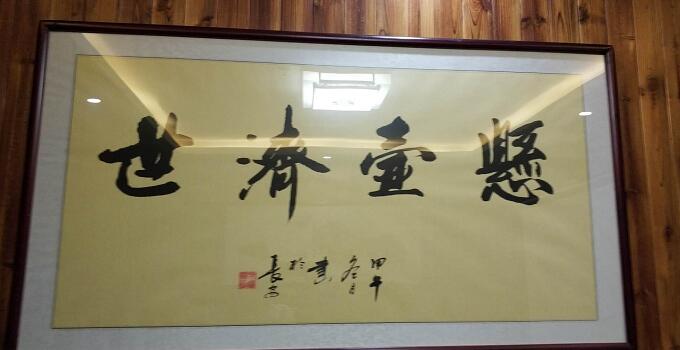 懸壺濟世
甲午冬月書於長安